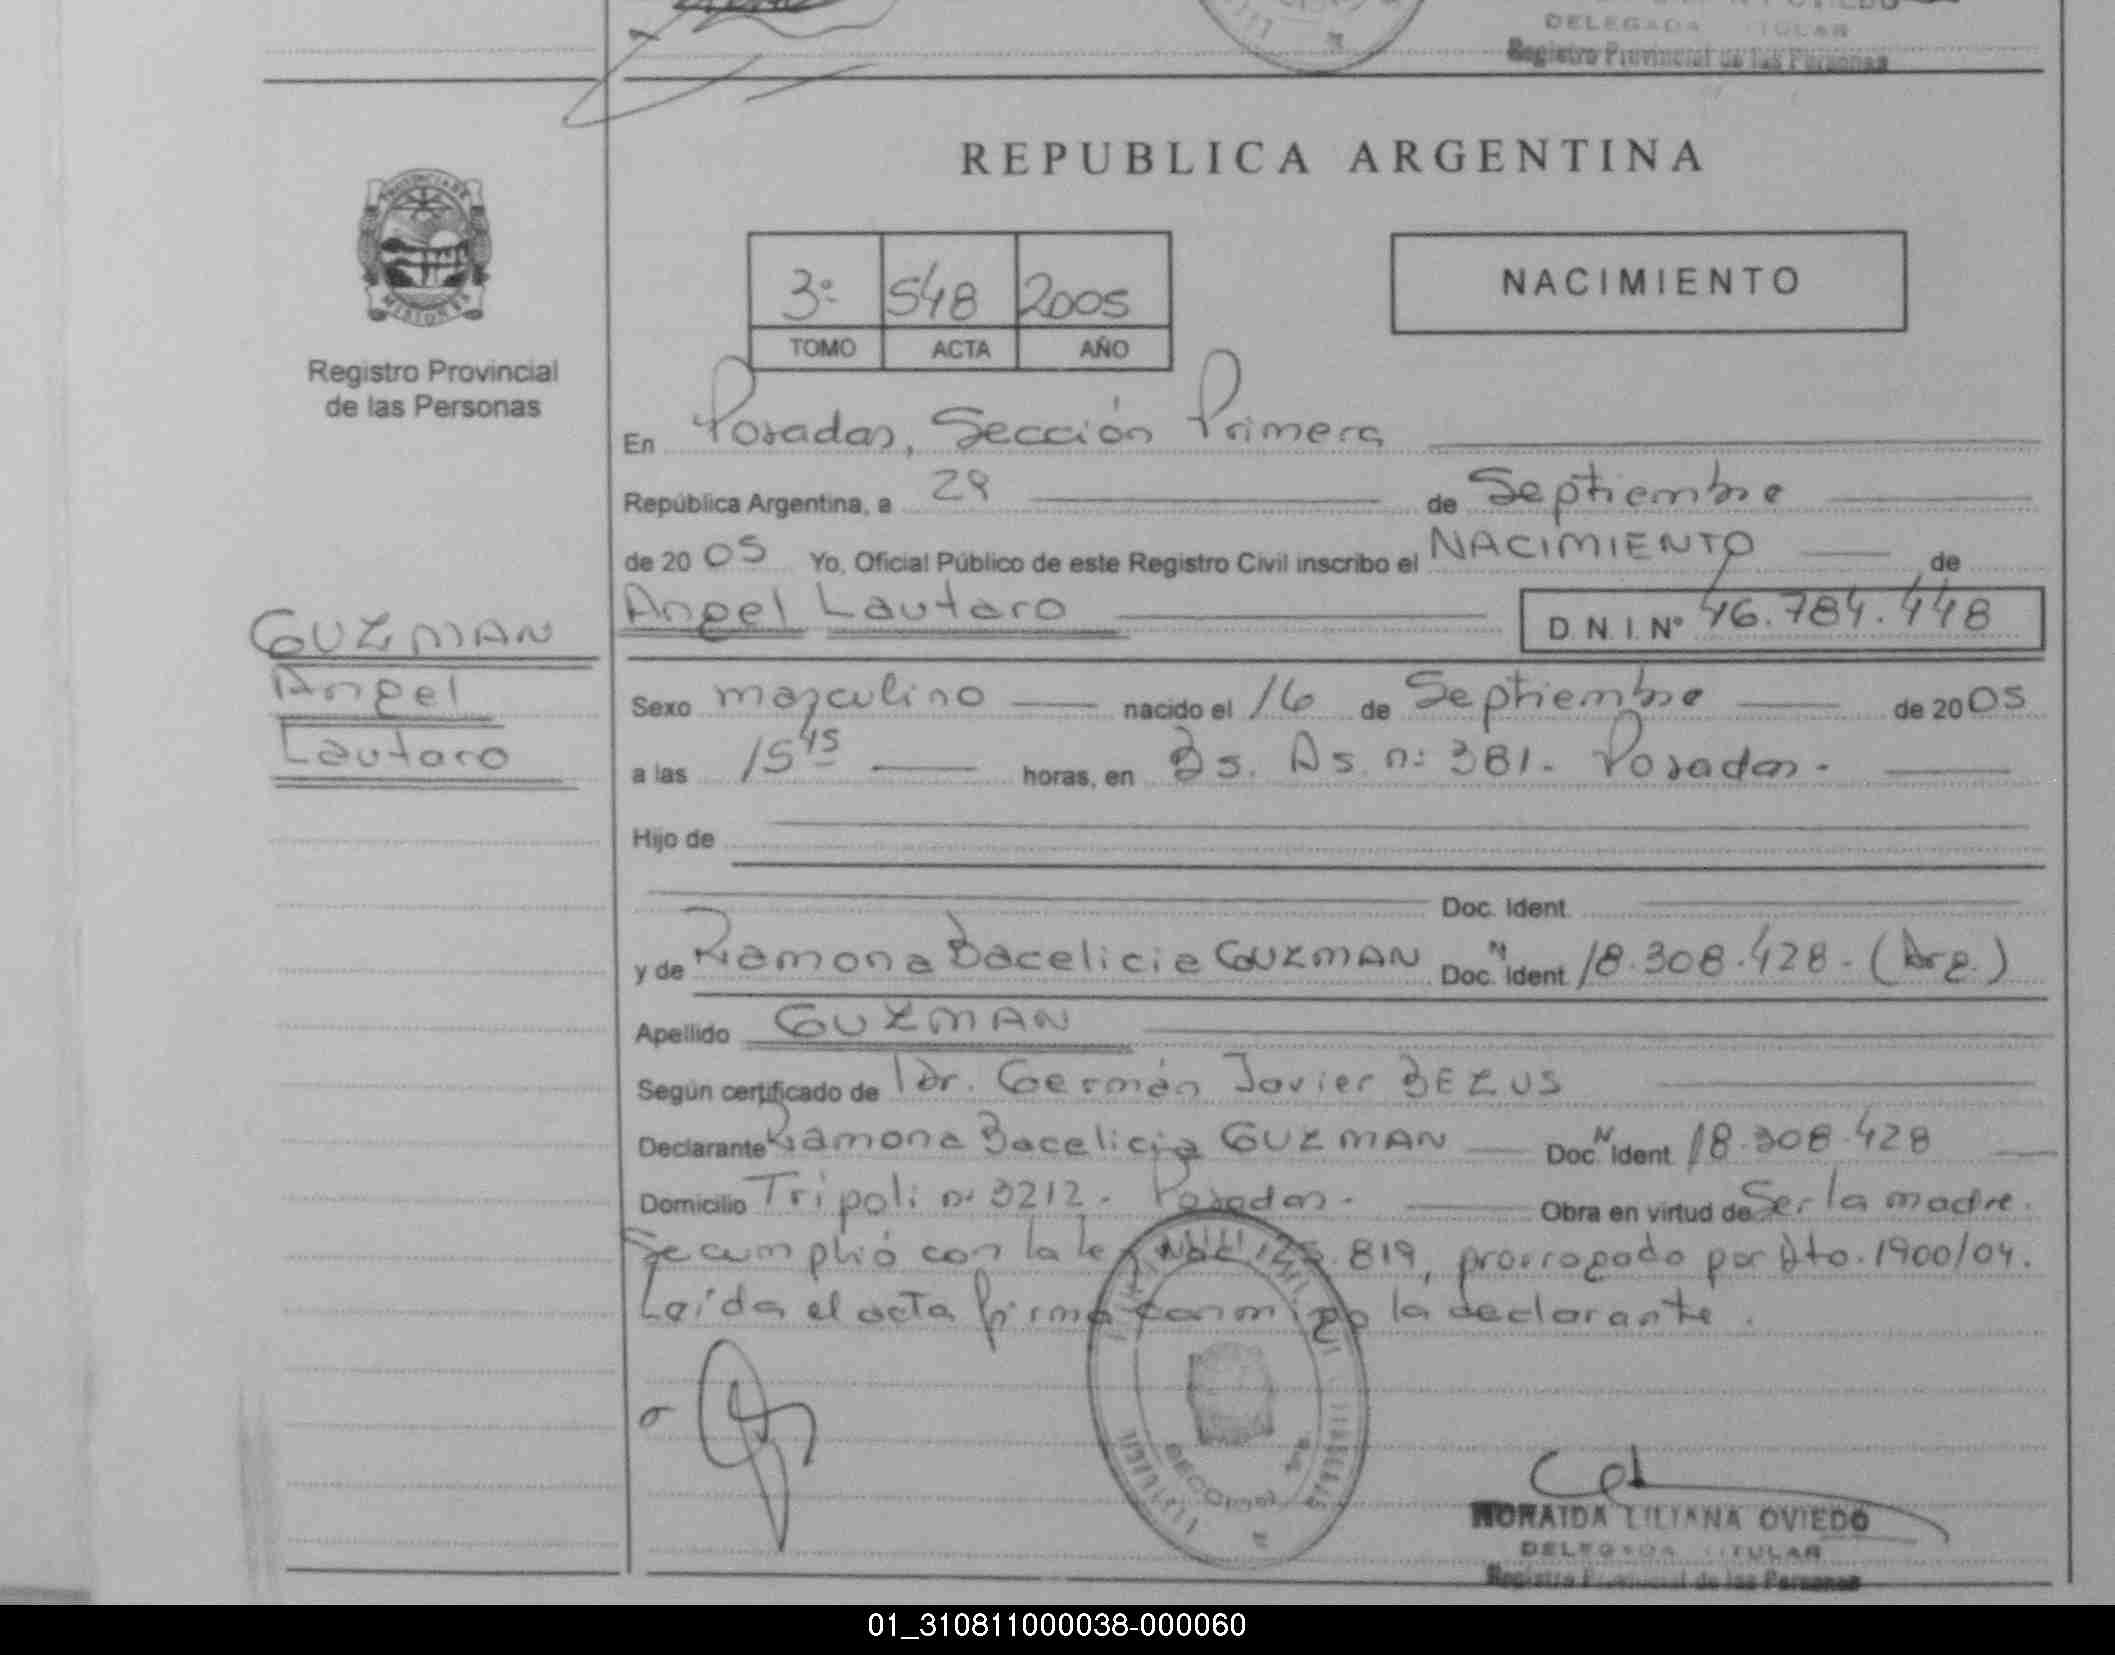 DELEGADA TITULAR
Registro Provincial de las Personas
PROVINCIA DE
MISIONES
Registro Provincial
de las Personas
REPUBLICA ARGENTINA
3º 548 2005
TOMO ACTA AÑO
NACIMIENTO
En Posadas, Sección Primera
República Argentina, a 29 de Septiembre
de 2005 Yo, Oficial Público de este Registro Civil inscribo el NACIMIENTO de
Angel Lautaro D. N. I. Nº 46.784.448
GUZMAN
Angel
Lautaro
Sexo masculino nacido el 16 de Septiembre de 2005
a las 15 45 horas, en Bs. As. nº 381. Posadas.
Hijo de
Doc. Ident.
y de Ramona Bacelicia GUZMAN Doc. N Ident. 18.308.428. (Arg.)
Apellido GUZMAN
Según certificado de Dr. Germán Javier BEZUS
Declarante Ramona Bacelicia GUZMAN Doc. N Ident. 18.308.428
Domicilio Tripoli nº 3212. Posadas. Obra en virtud de Ser la madre.
Se cumplió con la ley 25.819, prorrogado por Dto. 1900/04.
Leída el acta firma conmigo la declarante.
SECCION
MORAIDA LILIANA OVIEDO
DELEGADA TITULAR
Registro Provincial de las Personas
01_310811000038-000060